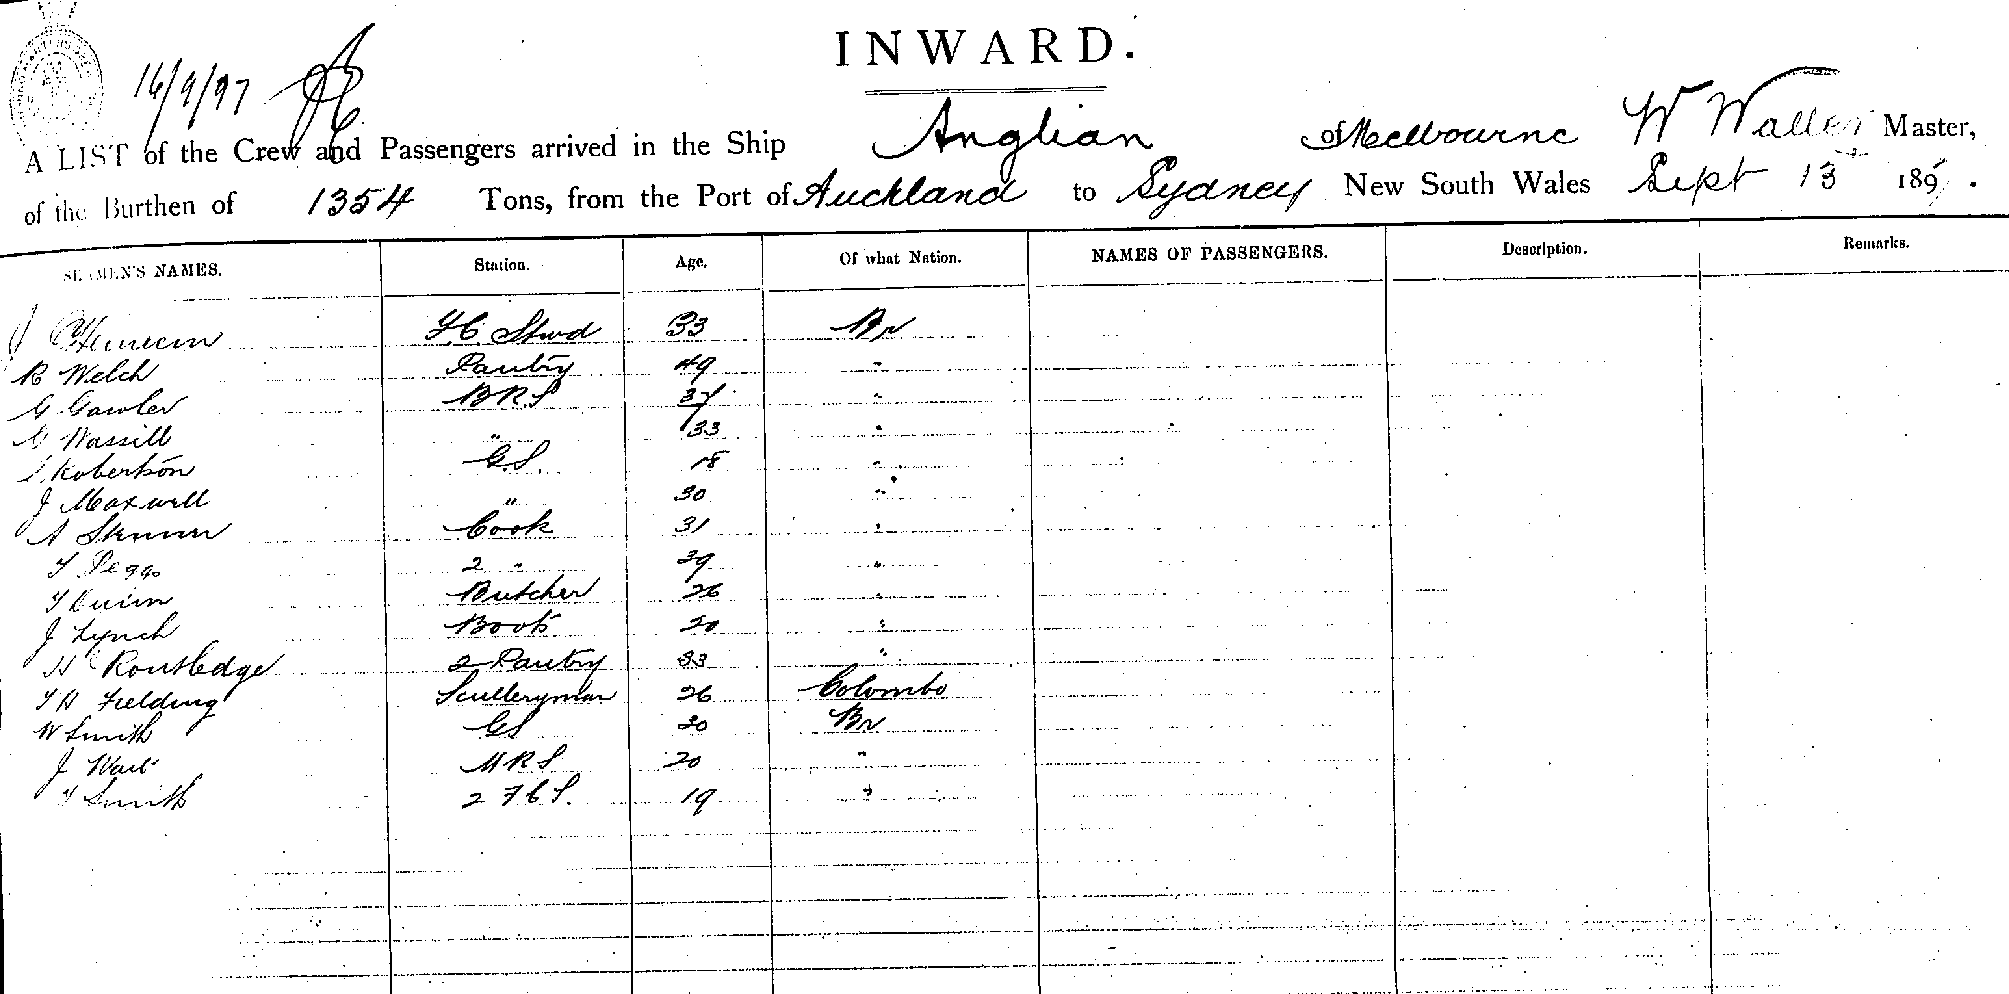 INWARD.
16/9/97
A LIST of the Crew and Passengers arrived in the Ship Anglian of Melbourne W Waller Master,
of the Burthen of 1354 Tons, from the Port of Auckland to Sydney New South Wales Sept 13 1897.
SEAMEN'S NAMES. Station. Age. Of what Nation. NAMES OF PASSENGERS. Description. Remarks.
J F.C. Stwd 33 Br
R Welch Pantry 49 "
G Gawler BRS 37 "
G Wassill " 33 "
Robertson G.S. 18 "
J Maxwell " 30 "
A Skinner Cook 31 "
T Pegg 2 " 39 "
T Quinn Butcher 26 "
J Lynch Boots 20 "
H Routledge 2 Pantry 33 "
T H Fielding Sculleryman 26 Colombo
W Smith GS 20 Br
J Wait MRS 20 "
T Smith 2 F C S. 19 "